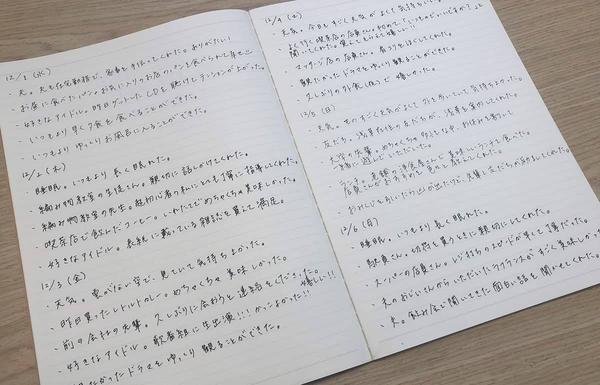 12/1 (水)
・夫。夫も在宅勤務で、家事を手伝ってくれた。ありがたい!
・お昼に食べたパン。お気に入りのお店のパンを食べられて幸せ
・好きなアイドル。昨日ゲットしたCDを聴けてテンションが上がった。
・いつもより早く夕食を食べることができた。
・いつもよりゆっくりお風呂に入ることができた。
12/2 (木)
・睡眠。いつもより長く眠れた。
・編み物教室の生徒さん。親切に話しかけてくれた。
・編み物教室の先生。超初心者の私にとても丁寧に指導してくれた。
・喫茶店で飲んだコーヒー。いれたてでめちゃくちゃ美味しかった。
・好きなアイドル。表紙に載っている雑誌を買えて満足。
12/3 (金)
・天気。雲がない空で、見ていて気持ちよかった。
・昨日買ったレトルトカレー。めちゃくちゃ美味しかった。
・前の会社の先輩。久しぶりに会おうと連絡をくださった。嬉しい!!
・好きなアイドル。歌番組に生出演!!! かっこよかった!!
たかったドラマをゆっくり観ることができた。
12/4 (土)
・天気。今日もすごく天気がよくて気持ち
・よく行く喫茶店の店員さん。
聞いてくれた。覚えてもらえて嬉しい!!
・マッサージ店の店員さん。肩こりをほぐしてくれた。
・観たかったドラマをゆっくり観ることができた。
・久しぶりの外食
12/5 (日)
・天気。ものすごく天気がよくて、外を歩いていて気持ちよかった。
・友だち。浅草在住の友だちが、浅草を案内してくれた。
・大学の先輩。めちゃくちゃ
一緒に遊んでいただいた。
・ランチ。老舗の洋食屋さんで美味しいランチを食べた。
・おみくじをひいたら凶が出たけど、夫婦と友だちが励ましてくれた。
12/6 (月)
・睡眠。いつもより長く眠れた。
・駅員さん。切符を買うときに親切にしてくれた。
・スーパーの店員さん。レジ打ちのスピードが早くて丁寧だった。
・夫のおじいさんからいただいたラフランスがすごく美味しかった。
・夫。飲み会で聞いてきた面白い話を聞かせてくれた。